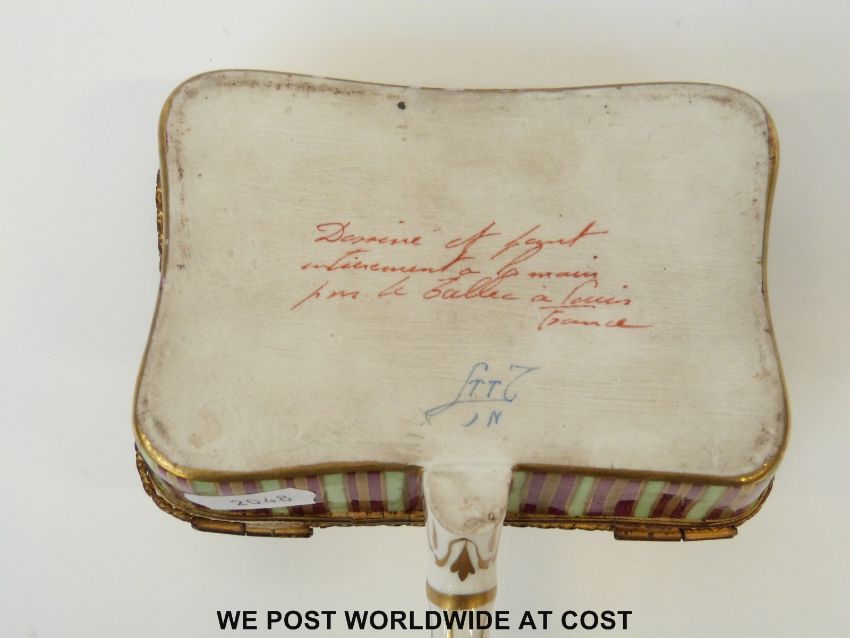 Dessiné et peint
entierement a la main
par le Tallec à Paris
France
2048
WE POST WORLDWIDE AT COST